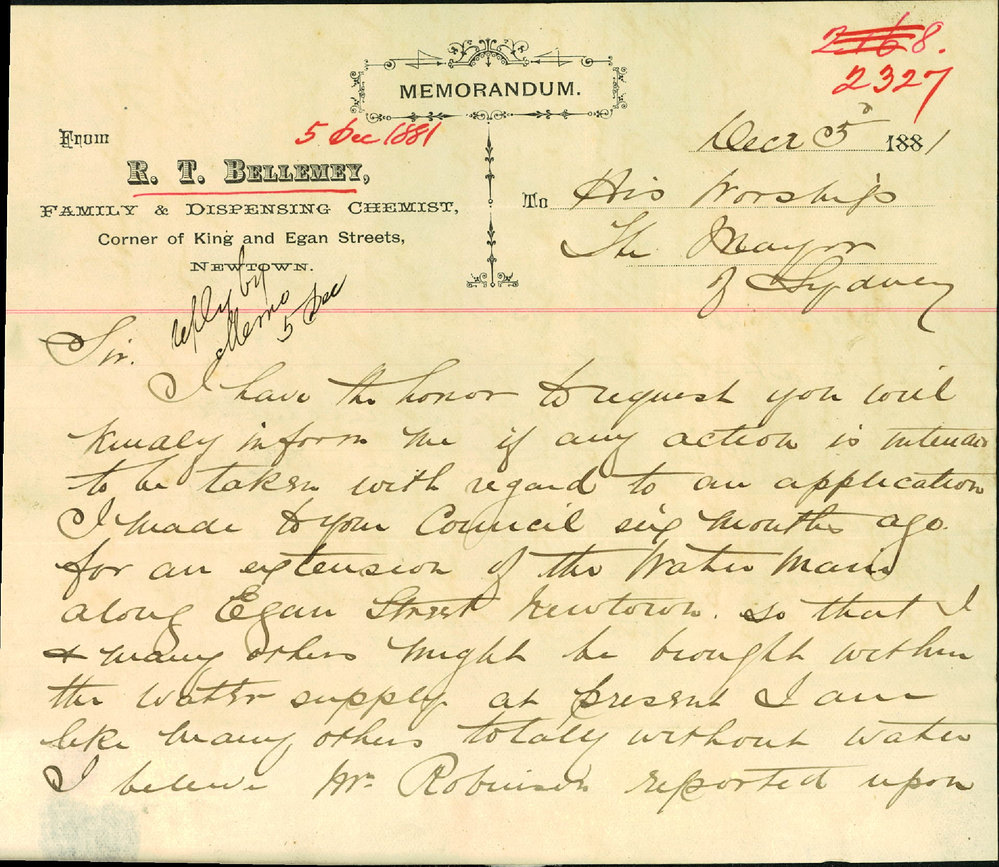 2168.
2327
MEMORANDUM.
From
5 Dec 1881
R. T. BELLEMEY,
FAMILY & DISPENSING CHEMIST,
Corner of King and Egan Streets,
NEWTOWN.
reply by
Memo
5 Dec
Decr 5th 1881
To His Worship
The Mayor
of Sydney
Sir.
I have the honor to request you will
kindly inform me if any action is intended
to be taken with regard to an application
I made to your Council six months ago
for an extension of the Water Main
along Egan Street Newtown. so that I
& many others might be brought within
the water supply at present I am
like many others totaly without water
I beleive Mr Robinson reported upon